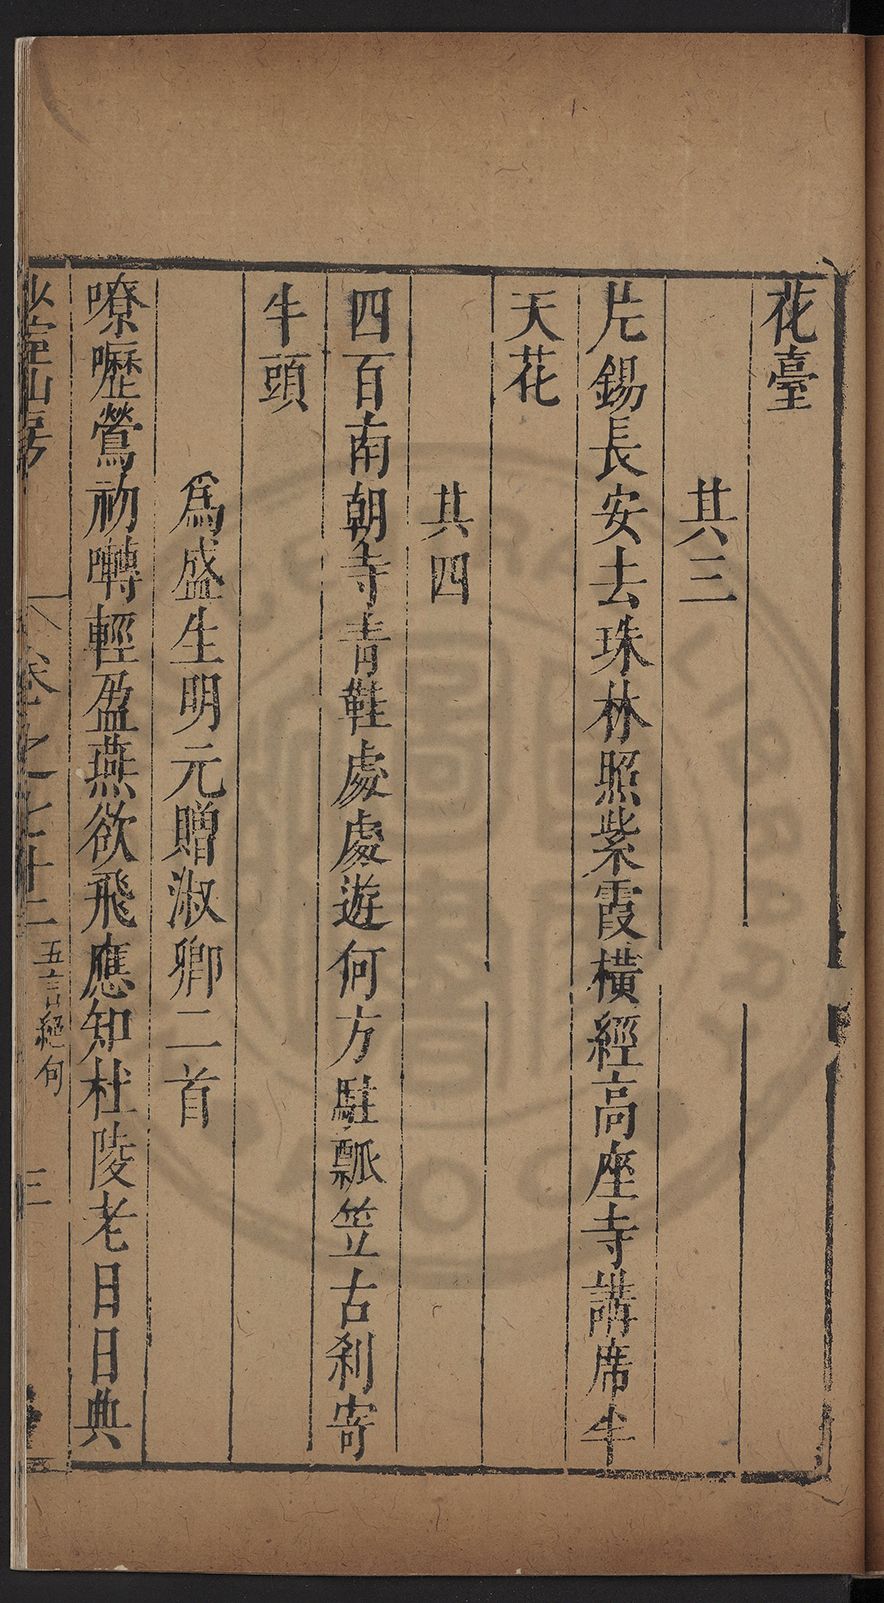 花臺
其三
片錫長安去珠林照紫霞橫經高座寺講席半
天花
其四
四百南朝寺青鞋處處遊何方駐瓢笠古刹寄
牛頭
為盛生明元贈淑卿二首
嘹嚦鶯初囀輕盈燕欲飛應知杜陵老日日典
卷之七十二 五言絕句 三